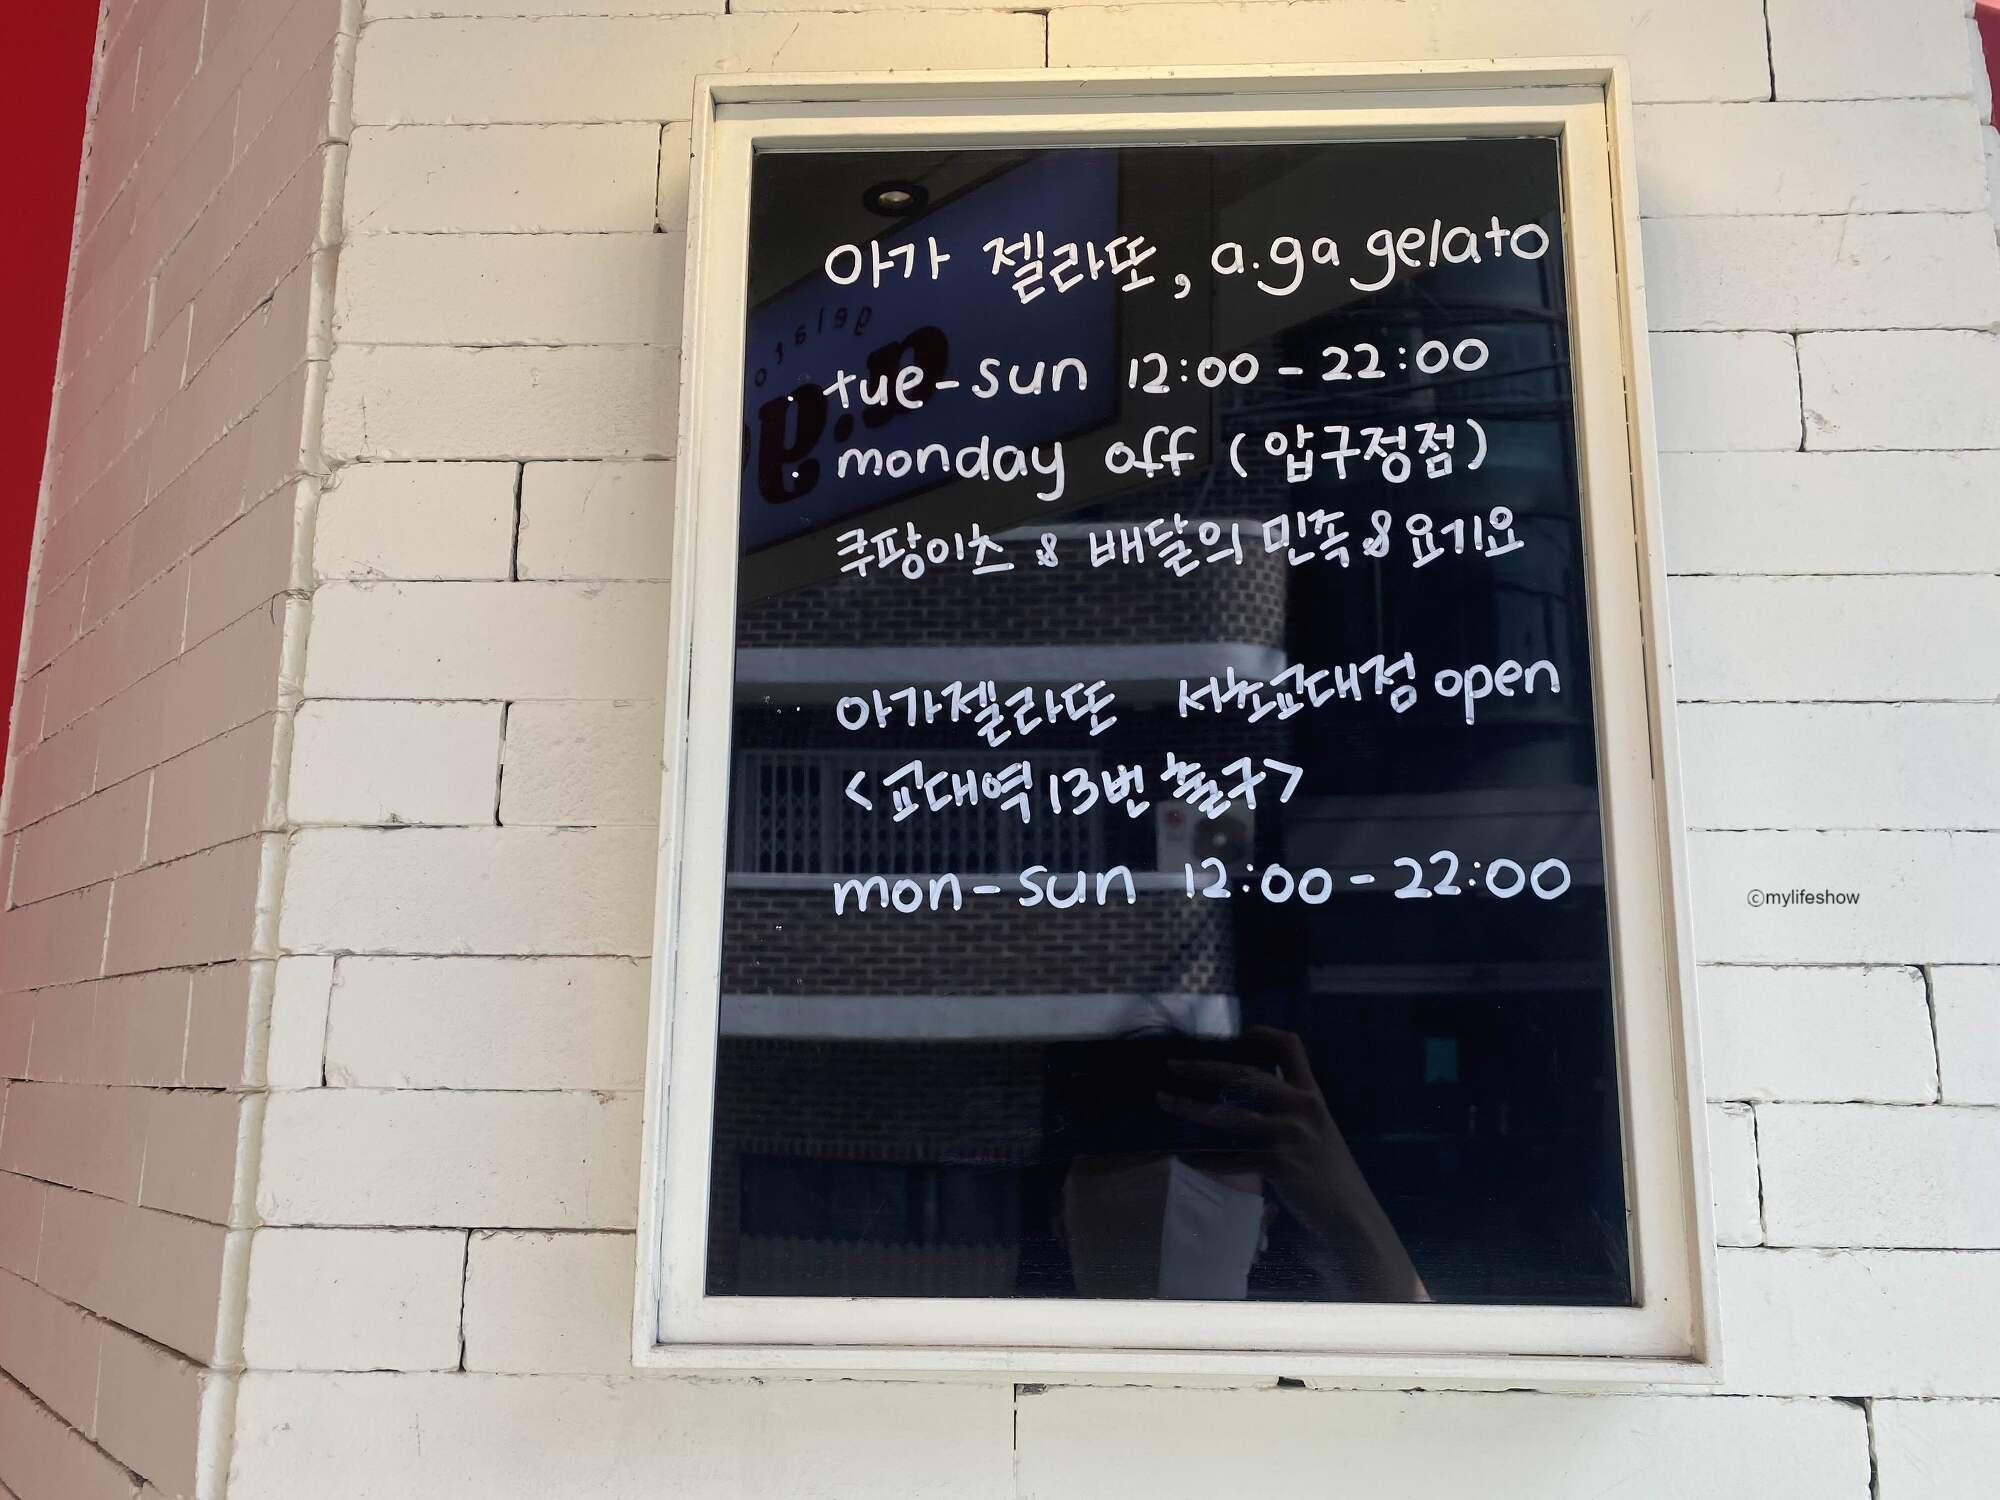 아가 젤라또, a.ga gelato
· tue-sun 12:00-22:00
· monday off (압구정점)
쿠팡이츠 & 배달의 민족 & 요기요
아가젤라또 서초교대점 open
<교대역 13번 출구>
mon-sun 12:00-22:00
ⓒmylifeshow
gelato
a.ga